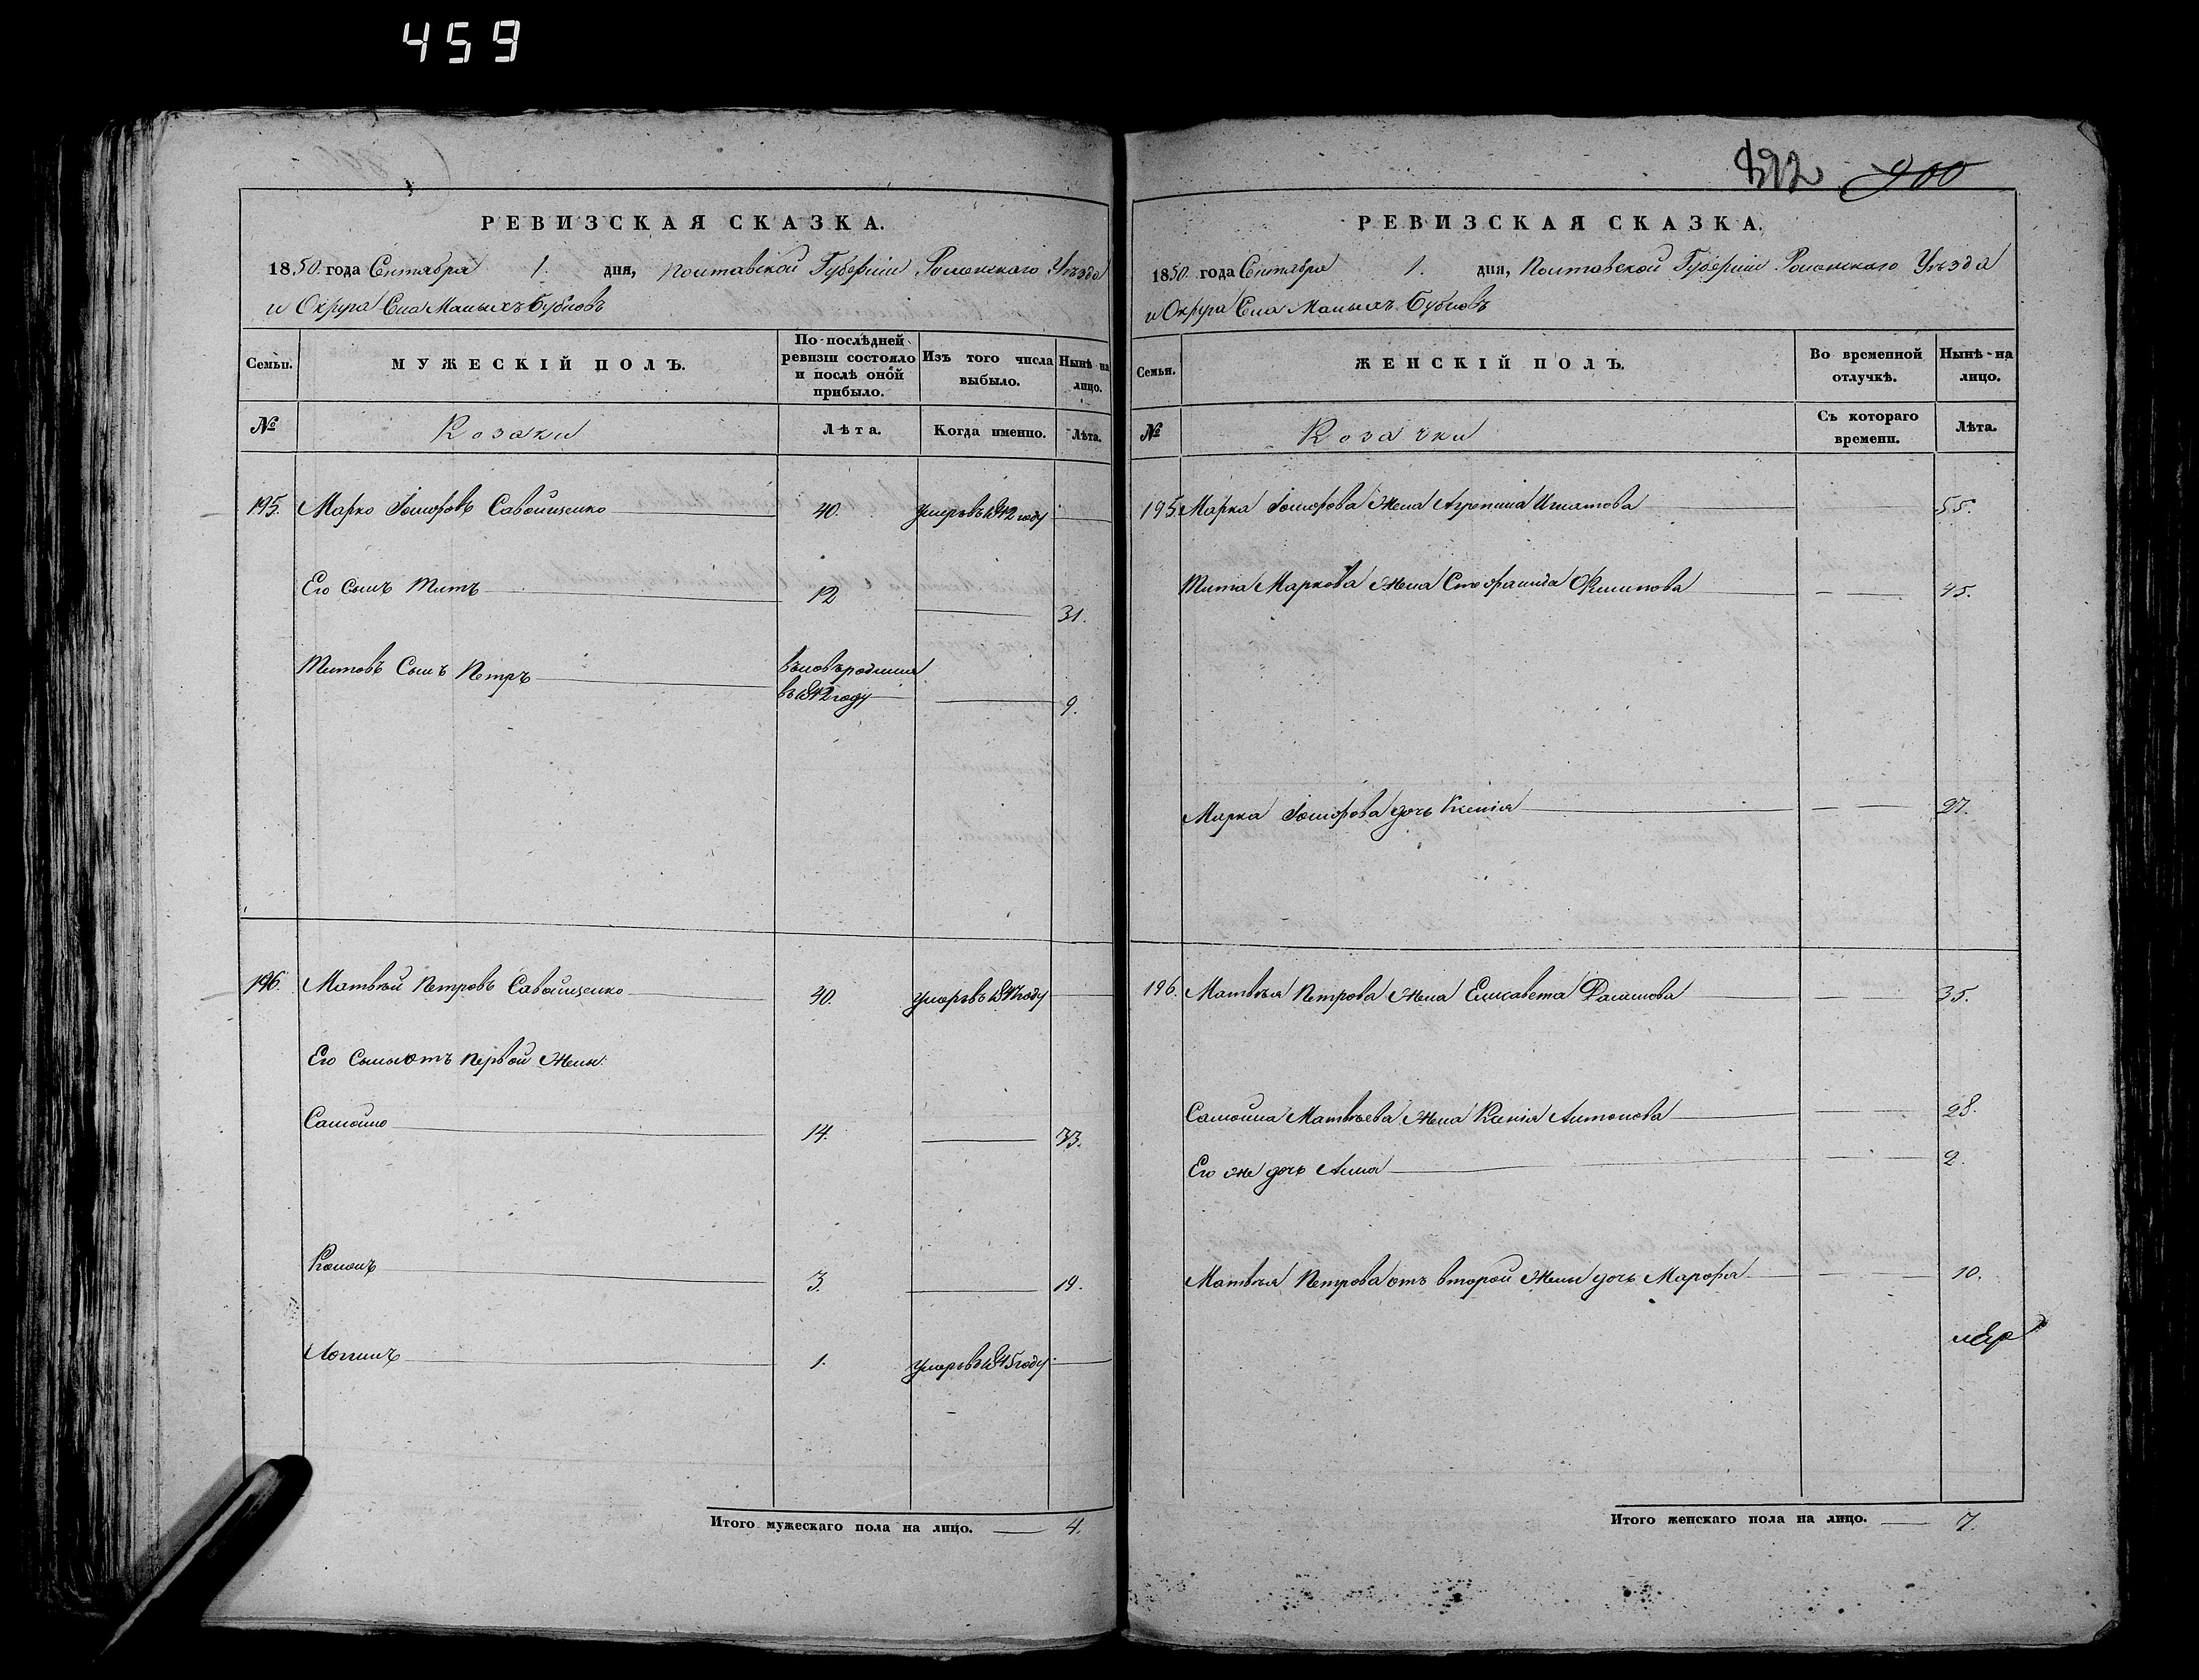 459
892 900
РЕВИЗСКАЯ СКАЗКА.
1850. года Сентября 1. дня, Полтавской Губернии Роменского Уѣзда
и Округа Села Малыхъ Бубновъ
Семьи. МУЖЕСКІЙ ПОЛЪ. По послѣдней ревизіи состояло и послѣ оной прибыло. Изъ того числа выбыло. Нынѣ на лицо.
№ Козаки Лѣта. Когда именно. Лѣта.
195. Марко Савойщенко 40. умеръ въ 1842 году
Его Сынъ Титъ 12 31.
Титовъ Сынъ Петръ
въ 1842 году 9.
196. Матвѣй Петровъ Савойщенко 40. умеръ въ году
Его Сыны отъ первой Жены:
Самойло 14. 33.
Кононъ 3. 19.
Логинъ 1. умеръ въ 1845 году
Итого мужескаго пола на лицо. 4.
РЕВИЗСКАЯ СКАЗКА.
1850. года Сентября 1. дня, Полтавской Губернии Роменского Уѣзда
и Округа Села Малыхъ Бубновъ
Семьи. ЖЕНСКІЙ ПОЛЪ. Во временной отлучкѣ. Нынѣ на лицо.
№ Козачки Съ котораго времени. Лѣта.
195. Марка Жена Агрепина Игнатова 55.
Тита Маркова Жена Стефанида 45.
Марка дочь Ксенія 27.
196. Матвѣя Петрова Жена Елисавета 35.
Самойла Матвѣева Жена Ксенія Антонова 28.
Его же дочь Анна 2.
Матвѣя Петрова отъ второй Жены дочь Марофа 10.
Итого женскаго пола на лицо. 7.